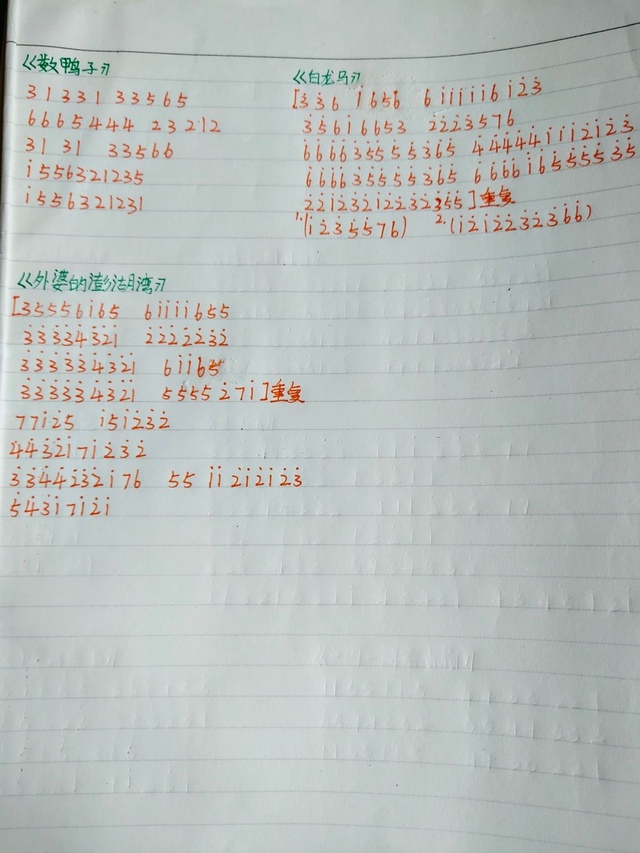 《数鸭子》
3 1 3 3 1 3 3 5 6 5
6 6 6 5 4 4 4 2 3 2 1 2
3 1 3 1 3 3 5 6 6
i 5 5 6 3 2 1 2 3 5
i 5 5 6 3 2 1 2 3 1
《白龙马》
[3̇ 3̇ 6 i 6 5 6 6 i i i i i 6 i 2̇ 3̇
3̇ 5̇ 6 i 6 6 5 3 2̇ 2̇ 2̇ 3̇ 5 7 6
6̇ 6̇ 6̇ 6̇ 3̇ 5̇ 5̇ 5̇ 5̇ 3̇ 6̇ 5̇ 4̇ 4̇ 4̇ 4̇ 4̇ i i i 2̇ i 2̇ 3̇
6̇ 6̇ 6̇ 6̇ 3̇ 5̇ 5̇ 5̇ 5̇ 3̇ 6̇ 5̇ 6̇ 6̇ 6̇ 6̇ i 6̇ 5̇ 5̇ 5̇ 5̇ 3̇ 5̇
2̇ 2̇ i 2̇ 3̇ 2̇ i 2̇ 2̇ 3̇ 2̇ 3̇ 5̇ 5̇ ] 重复
1. (i 2̇ 3̇ 5̇ 5̇ 7 6) 2. (i 2̇ i 2̇ 2̇ 3̇ 2̇ 3̇ 6̇ 6̇)
《外婆的澎湖湾》
[3 5 5 5 6 i 6 5 6 i i i i 6 5 5
3̇ 3̇ 3̇ 3̇ 4̇ 3̇ 2̇ i 2̇ 2̇ 2̇ 2̇ 2̇ 3̇ 2̇
3̇ 3̇ 3̇ 3̇ 3̇ 4̇ 3̇ 2̇ i 6 i i 6 5
3̇ 3̇ 3̇ 3̇ 3̇ 4̇ 3̇ 2̇ i 5 5 5 5 2̇ 7 i ] 重复
7 7 i 2̇ 5 i 5 i 2̇ 3̇ 2̇
4̇ 4̇ 3̇ 2̇ i 7 i 2̇ 3̇ 2̇
3̇ 3̇ 4̇ 4̇ 2̇ 3̇ 2̇ i 7 6 5 5 i i 2̇ i 2̇ i 2̇ 3̇
5̇ 4̇ 3̇ i 7 i 2̇ i